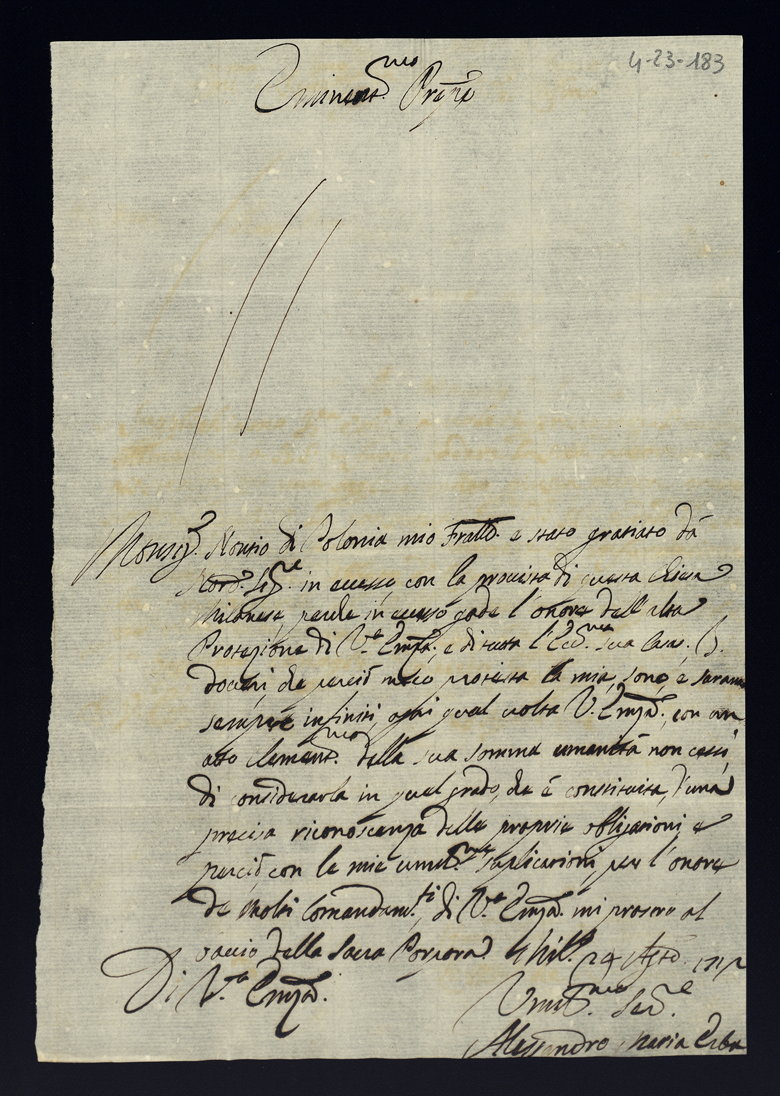 4-23-183
Eminent.mo Pr̃npe
Monsig.r Nontio di Polonia mio Fratello. e stato gratiato dà
Nord. Sig.re in eccesso con la provista di questa Chiesa
Milanese, perche in eccesso gode l'onore dell'alta
Protezione di V.ra Emza. e di tutta l'Ecc.ma sua Casa. Gl.
doveri, che perciò meco protesta la mia, sono, e saranno
sempre infiniti, ogni qual volta V. Emza. con un
atto clement.mo della sua somma umanità non cessi
di considerarla in quel grado, che è constituita, d'una
precisa riconoscenza delle proprie obligationi, e
perciò con le mie umil.me suplicationi per l'onore
de molti Comandam.ti di V.ra Emza. mi prostro al
baccio della Sacra Porpora. Mil.o 24 Agto.
Di V.ra Emza.
Umil.mo Ser.re
Alessandro Maria Erba